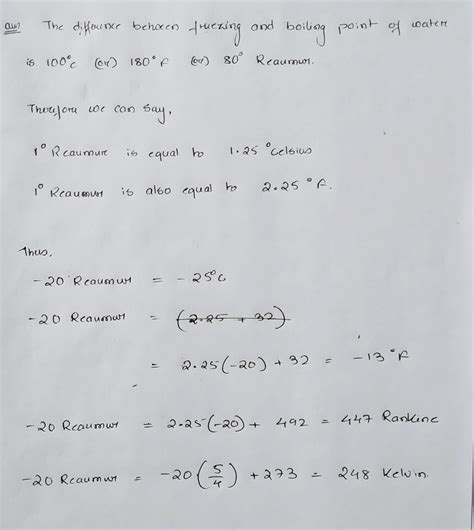 Ans The difference between freezing and boiling point of water
is 100°c (or) 180°F (or) 80° Reaumur.
Therefore we can say,
1° Reaumur is equal to 1.25 °Celsius
1° Reaumur is also equal to 2.25 °F.
Thus,
-20 Reaumur = -25°C
-20 Reaumur = (2.25 + 32)
= 2.25(-20) + 32 = -13 °F
-20 Reaumur = 2.25(-20) + 492 = 447 Rankine
-20 Reaumur = -20(5/4) + 273 = 248 Kelvin.